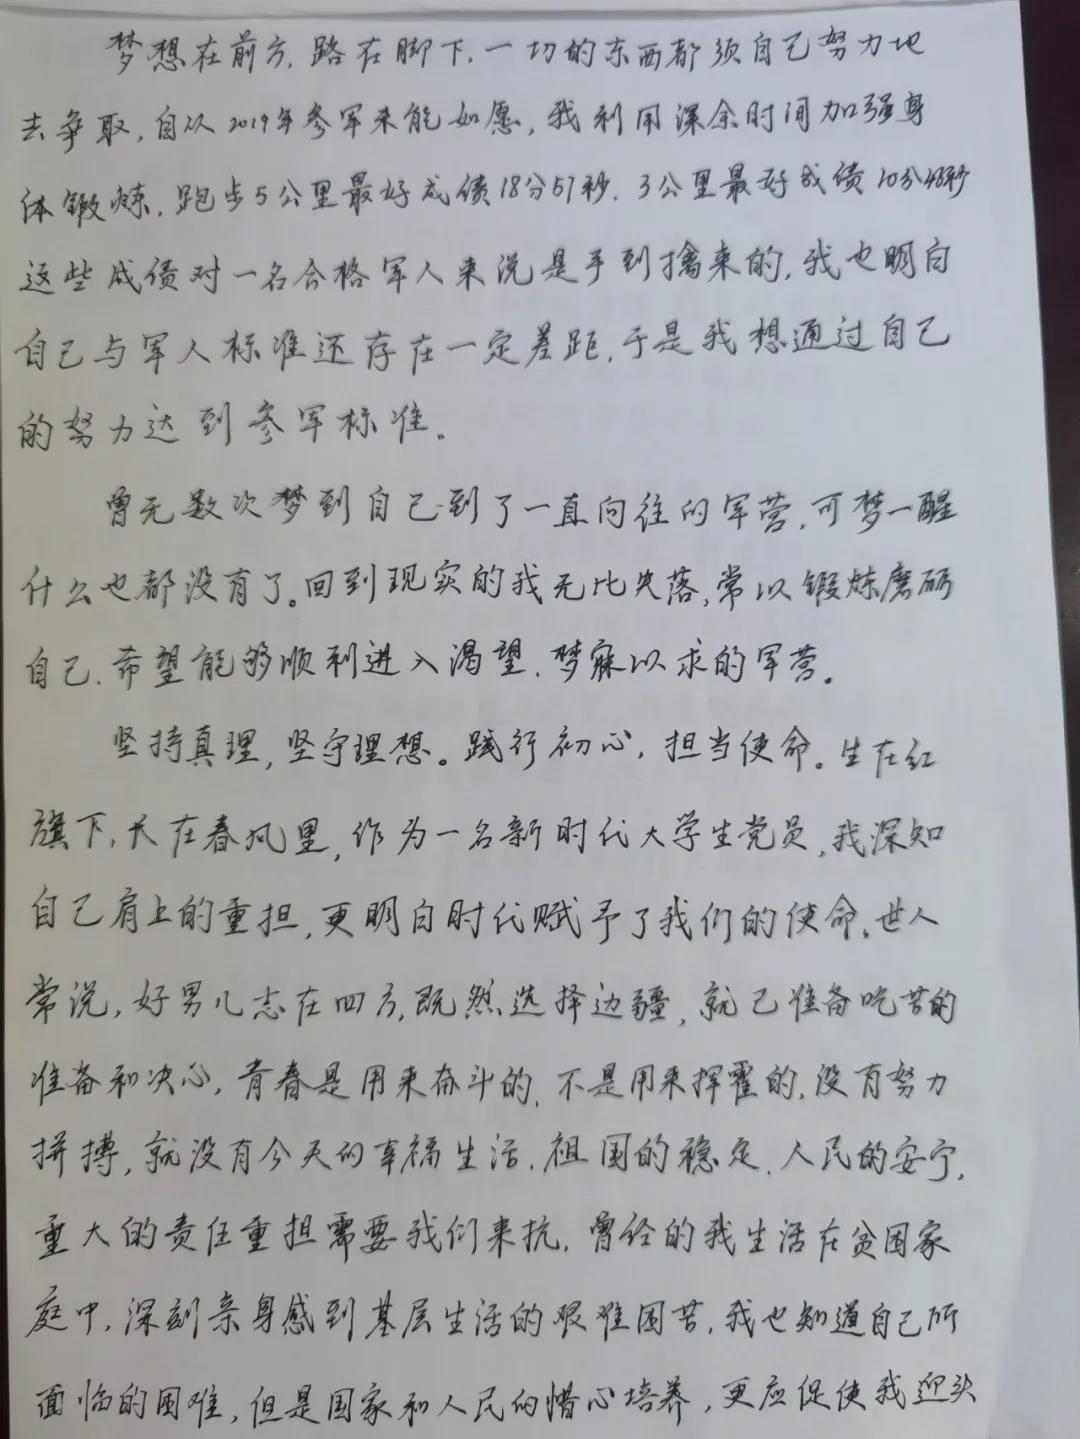 梦想在前方,路在脚下,一切的东西都须自己努力地
去争取,自从2019年参军未能如愿,我利用课余时间加强身
体锻炼,跑步5公里最好成绩18分57秒、3公里最好成绩10分48秒
这些成绩对一名合格军人来说是手到擒来的,我也明白
自己与军人标准还存在一定差距,于是我想通过自己
的努力达到参军标准。
曾无数次梦到自己到了一直向往的军营,可梦一醒
什么也都没有了。回到现实的我无比失落,常以锻炼磨砺
自己、希望能够顺利进入渴望、梦寐以求的军营。
坚持真理,坚守理想。践行初心,担当使命。生在红
旗下,长在春风里,作为一名新时代大学生党员,我深知
自己肩上的重担,更明白时代赋予了我们的使命。世人
常说,好男儿志在四方,既然选择边疆,就已准备吃苦的
准备和决心,青春是用来奋斗的、不是用来挥霍的,没有努力
拼搏,就没有今天的幸福生活,祖国的稳定、人民的安宁,
重大的责任重担需要我们来抗,曾经的我生活在贫困家
庭中,深刻亲身感到基层生活的艰难困苦,我也知道自己所
面临的困难,但是国家和人民的惜心培养,更应促使我迎头